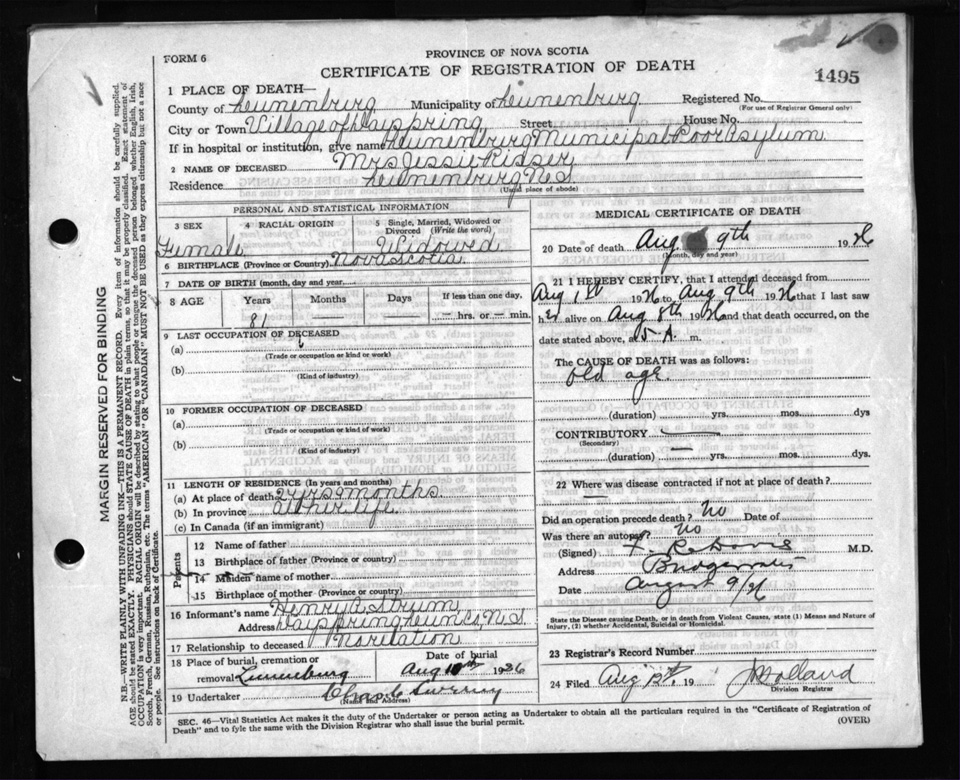 FORM 6
PROVINCE OF NOVA SCOTIA
CERTIFICATE OF REGISTRATION OF DEATH
1495
1 PLACE OF DEATH—
County of Lunenburg Municipality of Lunenburg Registered No.
(For use of Registrar General only)
City or Town Village of Dayspring Street House No.
If in hospital or institution, give name Lunenburg Municipal Poor Asylum
2 NAME OF DECEASED Mrs Jessie Risser
Residence Lunenburg N.S
(Usual place of abode)
PERSONAL AND STATISTICAL INFORMATION
3 SEX 4 RACIAL ORIGIN 5 Single, Married, Widowed or Divorced (Write the word)
Female Widowed
6 BIRTHPLACE (Province or Country) Nova Scotia
7 DATE OF BIRTH (month, day and year)
8 AGE Years Months Days If less than one day,
81 — — — hrs. or — min.
9 LAST OCCUPATION OF DECEASED
(a)
(Trade or occupation or kind or work)
(b)
(Kind of industry)
10 FORMER OCCUPATION OF DECEASED
(a)
(Trade or occupation or kind or work)
(b)
(Kind of industry)
11 LENGTH OF RESIDENCE (In years and months)
(a) At place of death 2 yrs 9 months
(b) In province all her life
(c) In Canada (if an immigrant)
Parents
12 Name of father
13 Birthplace of father (Province or country)
14 Maiden name of mother
15 Birthplace of mother (Province or country)
16 Informant's name Henry A Strum
Address Dayspring Lunb. N.S.
17 Relationship to deceased No relation
18 Place of burial, cremation or Date of burial
removal Lunenburg Aug 10th 1936
19 Undertaker Chas. Sweeny
(Name and Address)
MEDICAL CERTIFICATE OF DEATH
20 Date of death Aug 9th 1936
(Month, day and year)
21 I HEREBY CERTIFY, that I attended deceased from
Aug 1st 1936 to Aug 9th 1936 that I last saw
h er alive on Aug 8th 1936 and that death occurred, on
date stated above, at 5 A. m.
The CAUSE OF DEATH was as follows:
Old age.
(duration) yrs. mos. dys
CONTRIBUTORY —
(Secondary)
(duration) — yrs. mos. dys.
22 Where was disease contracted if not at place of death?
—
Did an operation precede death? No Date of
Was there an autopsy? No
(Signed) M.D.
Address Bridgewater
Date August 9/36
State the Disease causing Death, or in death from Violent Causes, state (1) Means and Nature of
Injury, (2) whether Accidental, Suicidal or Homicidal.
23 Registrar's Record Number
24 Filed Aug 19
Division Registrar
SEC. 46—Vital Statistics Act makes it the duty of the Undertaker or person acting as Undertaker to obtain all the particulars required in the "Certificate of Registration of
Death" and to fyle the same with the Division Registrar who shall issue the burial permit.
(OVER)
MARGIN RESERVED FOR BINDING
N.B.—WRITE PLAINLY WITH UNFADING INK—THIS IS A PERMANENT RECORD. Every item of information should be carefully supplied.
AGE should be stated EXACTLY. PHYSICIANS should STATE CAUSE OF DEATH in plain terms, so that it may be properly classified. Exact statement of
OCCUPATION is very important. RACIAL ORIGIN will be described by stating to what people or tongue the deceased person belonged whether English, Irish,
Scotch, French, German, Russian, Ruthenian, etc. The terms "AMERICAN" OR "CANADIAN" MUST NOT BE USED as they express citizenship but not a race
or people. See instructions on back of Certificate.